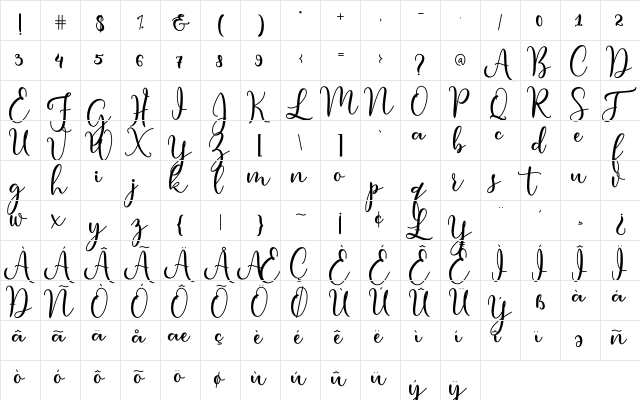 ! # $ % & ( ) * + , - . / 0 1 2
3 4 5 6 7 8 9 { = } ? @ A B C D
E F G H I J K L M N O P Q R S T
U V W X Y Z [ \ ] ` a b c d e f
g h i j k l m n o p q r s t u v
w x y z { | } ~ ¡ ¢ £ ¥ ¨ ´ ¸ ¿
À Á Â Ã Ä Å Æ Ç È É Ê Ë Ì Í Î Ï
Ð Ñ Ò Ó Ô Õ Ö Ø Ù Ú Û Ü Ý ß à á
â ã ä å æ ç è é ê ë ì í î ï ð ñ
ò ó ô õ ö ø ù ú û ü ý ÿ